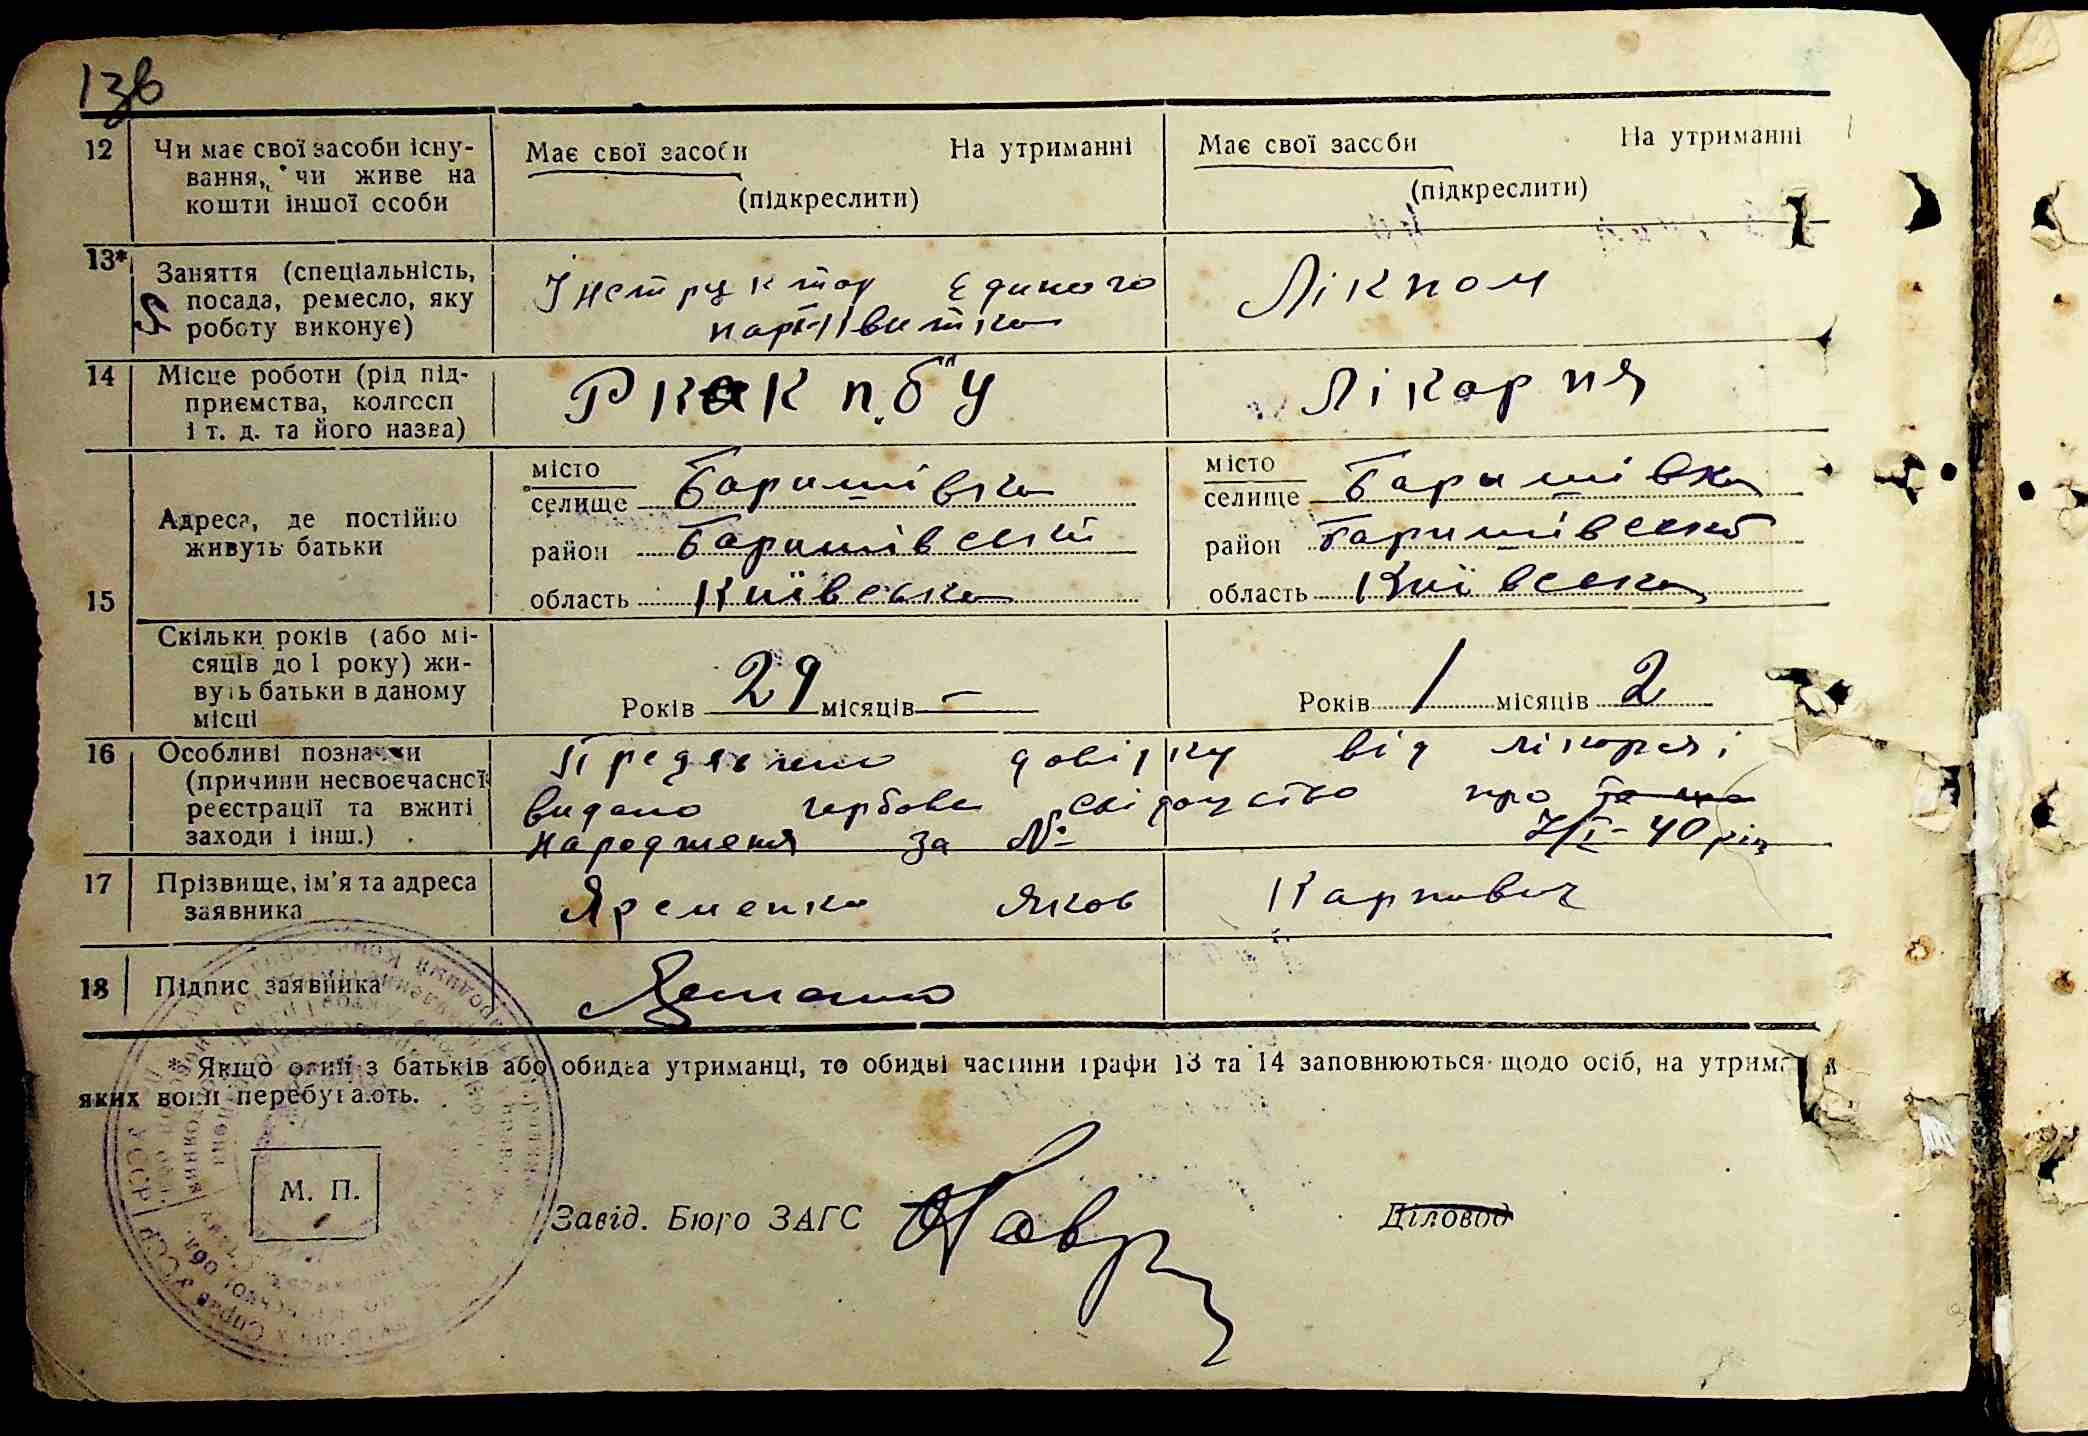 13в
12 Чи має свої засоби існу-
вання, чи живе на
кошти іншої особи
Має свої засоби На утриманні
(підкреслити)
Має свої засоби На утриманні
(підкреслити)
13* Заняття (спеціальність,
посада, ремесло, яку
роботу виконує)
Інструктор єдиного
партквитка
Лікпом
14 Місце роботи (рід під-
приємства, колгосп
і т. д. та його назва)
РК КП(б)У
Лікарня
15 Адреса, де постійно
живуть батьки
місто
селище Баришівка
район Баришівський
область Київська
місто
селище Баришівка
район Баришівський
область Київська
Скільки років (або мі-
сяців до 1 року) жи-
вуть батьки в даному
місці
Років 29 місяців –
Років 1 місяців 2
16 Особливі познаки
(причини несвоєчасної
реєстрації та вжиті
заходи і інш.)
довідку від лікарні
видано гербове свідоцтво про
народження за № 7/I-40 рік
17 Прізвище, ім'я та адреса
заявника
Яременко Яков Карпович
18 Підпис заявника
* Якщо один з батьків або обидва утриманці, то обидві частини графи 13 та 14 заповнюються щодо осіб, на
яких вони перебувають.
М. П.
Завід. Бюро ЗАГС
Діловод